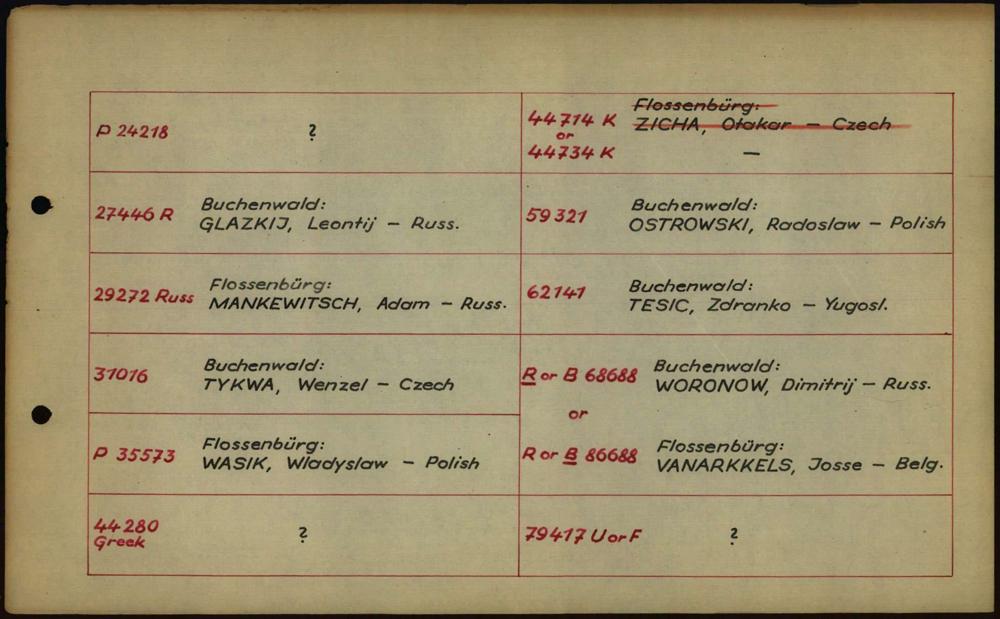 P 24218 ?
27446 R Buchenwald:
GLAZKIJ, Leontij – Russ.
29272 Russ Flossenbürg:
MANKEWITSCH, Adam – Russ.
31016 Buchenwald:
TYKWA, Wenzel – Czech
P 35573 Flossenbürg:
WASIK, Wladyslaw – Polish
44280 ?
Greek
44714 K Flossenbürg:
or ZICHA, Otakar – Czech
44734 K –
59321 Buchenwald:
OSTROWSKI, Radoslaw – Polish
62141 Buchenwald:
TESIC, Zdranko – Yugosl.
R or B 68688 Buchenwald:
WORONOW, Dimitrij – Russ.
or
R or B 86688 Flossenbürg:
VANARKKELS, Josse – Belg.
79417 U or F ?